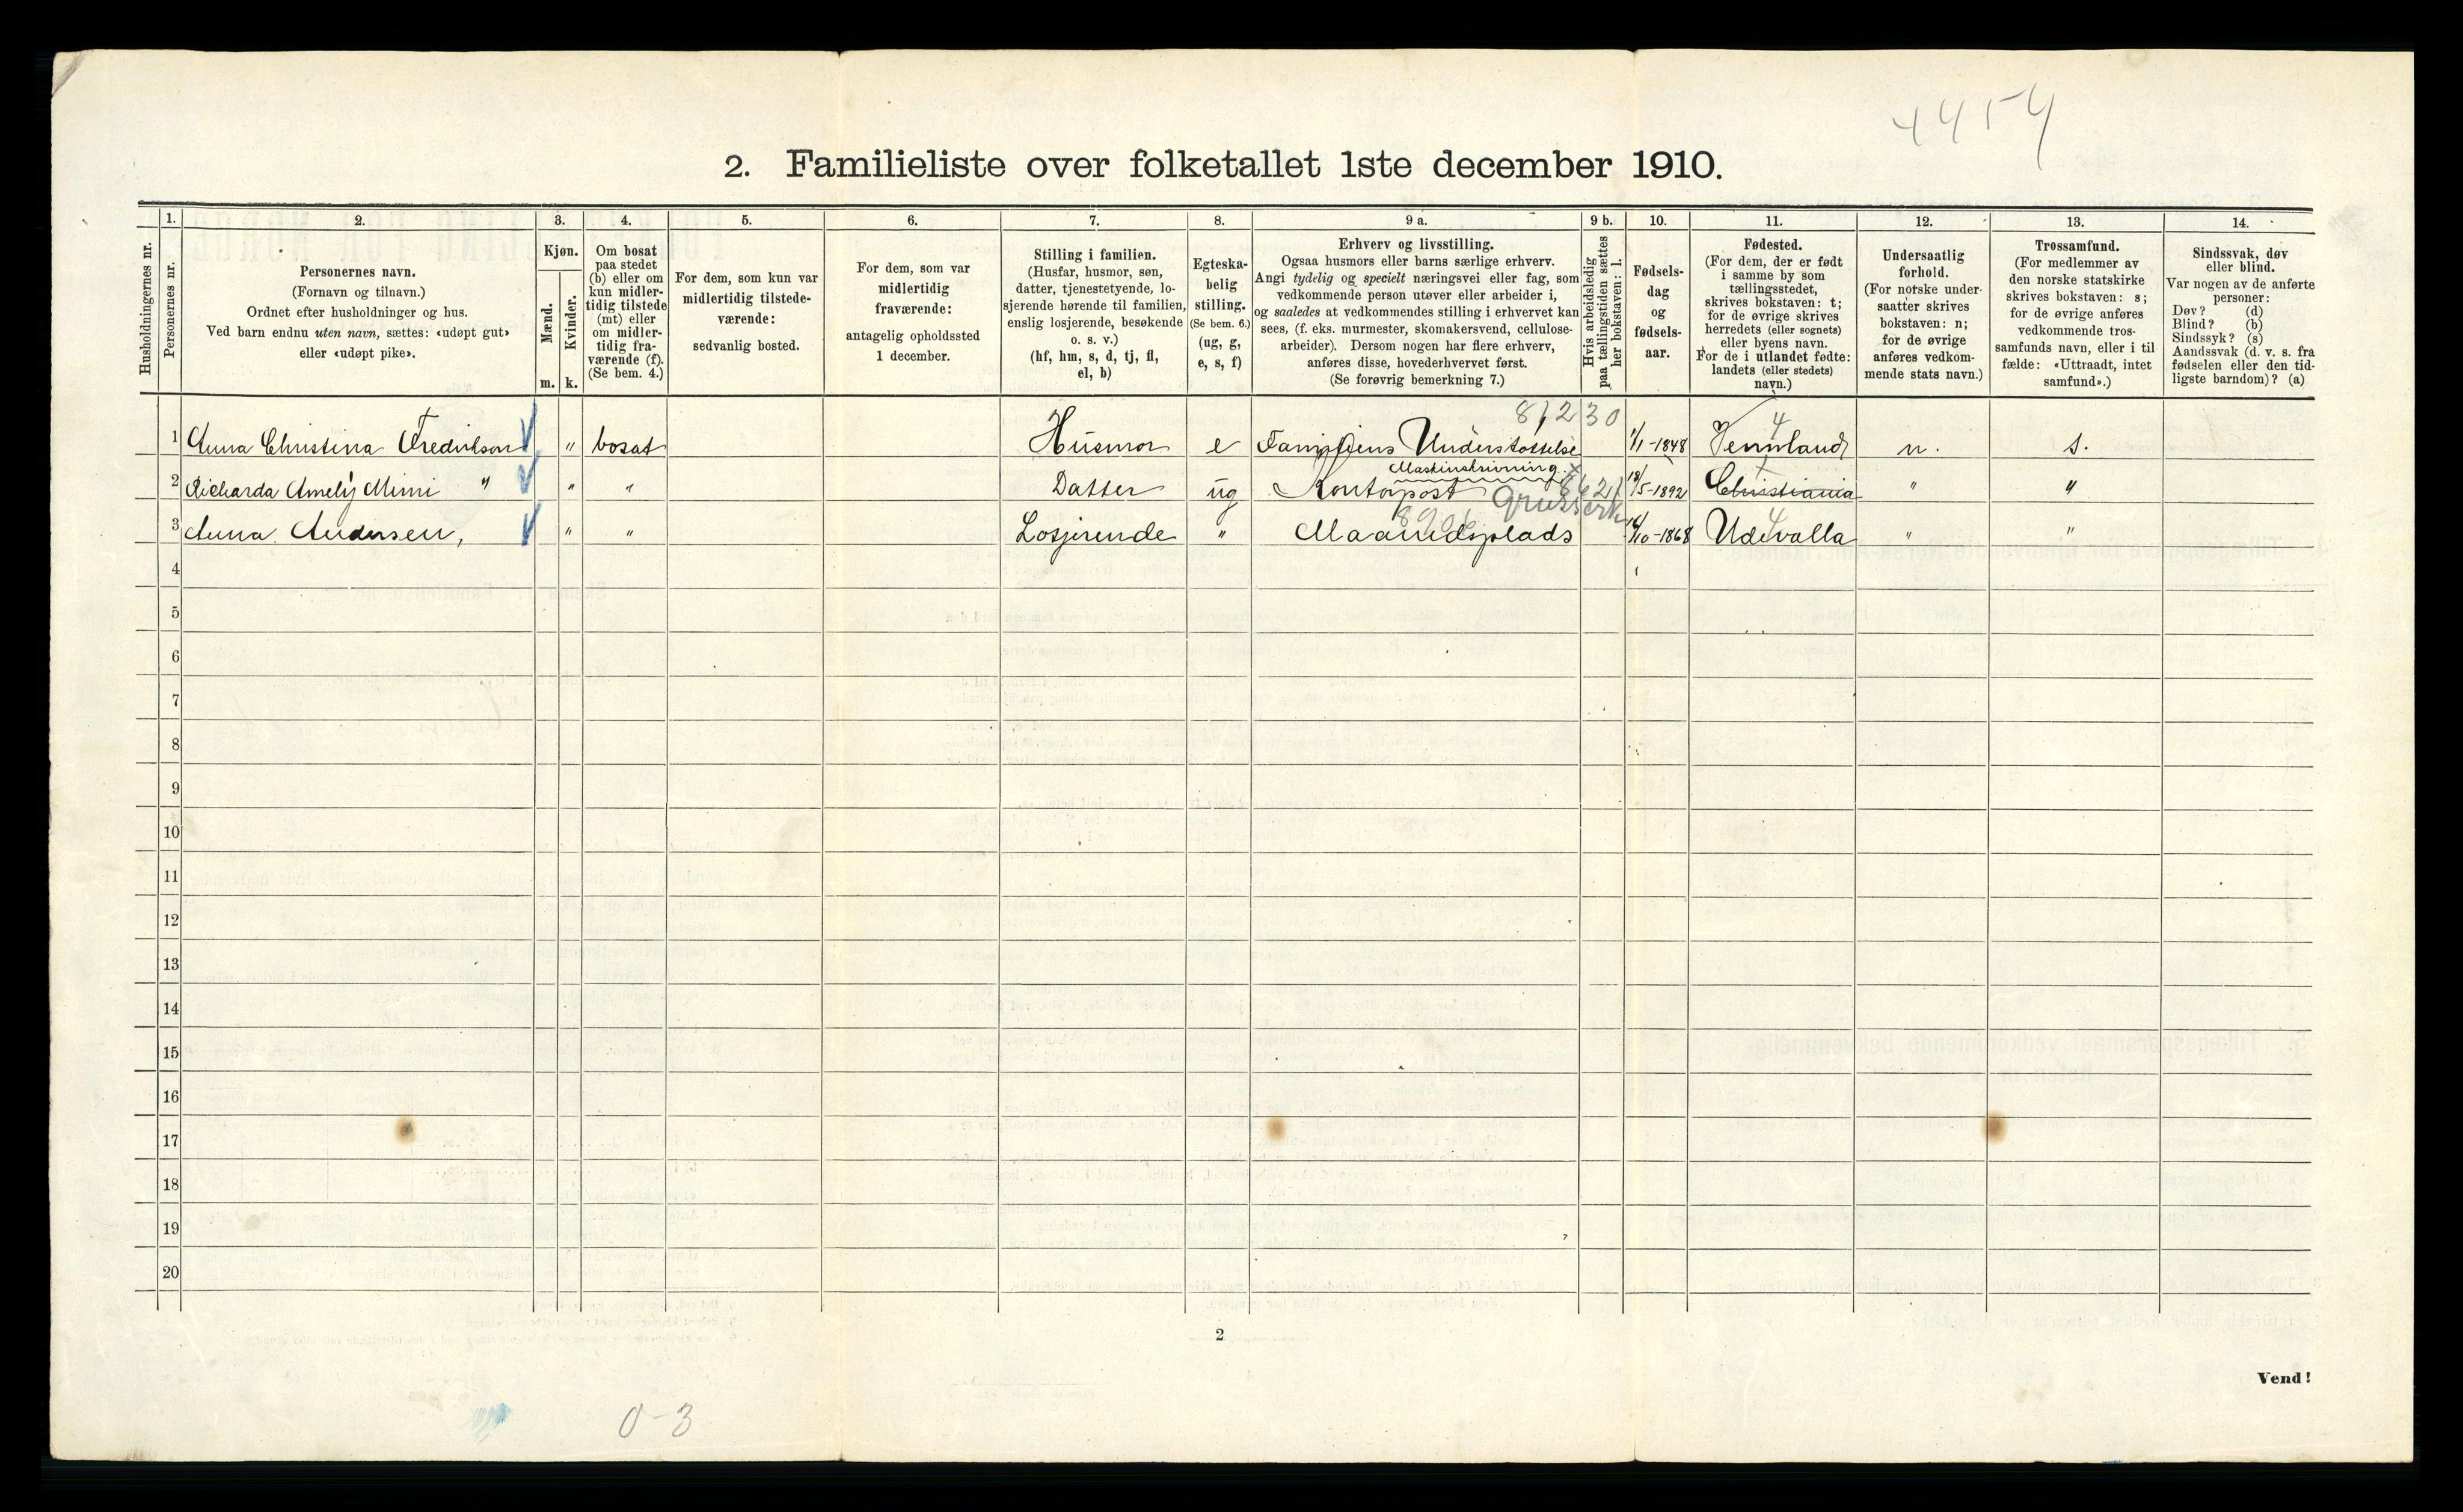 4454
2. Familieliste over folketallet 1ste december 1910.
Husholdningernes nr.
1.
Personernes nr.
2.
Personernes navn.
(Fornavn og tilnavn.)
Ordnet efter husholdninger og hus.
Ved barn endnu uten navn, sættes: «udøpt gut»
eller «udøpt pike».
3.
Kjøn.
Mænd.
m.
Kvinder.
k.
4.
Om bosat
paa stedet
(b) eller om
kun midler-
tidig tilstede
(mt) eller
om midler-
tidig fra-
værende (f).
(Se bem. 4.)
5.
For dem, som kun var
midlertidig tilstede-
værende:
sedvanlig bosted.
6.
For dem, som var
midlertidig
fraværende:
antagelig opholdssted
1 december.
7.
Stilling i familien.
(Husfar, husmor, søn,
datter, tjenestetyende, lo-
sjerende hørende til familien,
enslig losjerende, besøkende
o. s. v.)
(hf, hm, s, d, tj, fl,
el, b)
8.
Egteska-
belig
stilling.
(Se bem. 6.)
(ug, g,
e, s, f)
9 a.
Erhverv og livsstilling.
Ogsaa husmors eller barns særlige erhverv.
Angi tydelig og specielt næringsvei eller fag, som
vedkommende person utøver eller arbeider i,
og saaledes at vedkommendes stilling i erhvervet kan
sees, (f. eks. murmester, skomakersvend, cellulose-
arbeider). Dersom nogen har flere erhverv,
anføres disse, hovederhvervet først.
(Se forøvrig bemerkning 7.)
9 b.
Hvis arbeidsledig
paa tællingstiden sættes
her bokstaven: l.
10.
Fødsels-
dag
og
fødsels-
aar.
11.
Fødested.
(For dem, der er født
i samme by som
tællingsstedet,
skrives bokstaven: t;
for de øvrige skrives
herredets (eller sognets)
eller byens navn.
For de i utlandet fødte:
landets (eller stedets)
navn.)
12.
Undersaatlig
forhold.
(For norske under-
saatter skrives
bokstaven: n;
for de øvrige
anføres vedkom-
mende stats navn.)
13.
Trossamfund.
(For medlemmer av
den norske statskirke
skrives bokstaven: s;
for de øvrige anføres
vedkommende tros-
samfunds navn, eller i til
fælde: «Uttraadt, intet
samfund».)
14.
Sindssvak, døv
eller blind.
Var nogen av de anførte
personer:
Døv? (d)
Blind? (b)
Sindssyk? (s)
Aandssvak (d. v. s. fra
fødselen eller den tid-
ligste barndom)? (a)
81,230 4
1 Anna Christina Fredrikson " bosat Husmor e Familjens Understøttelse 1/1-1848 Vermland n. s.
Maskinskrivning
2 Richarda Amely Mimi " " " Datter ug Kontorpost 18/5-1892 Christiania " "
4
3 Anna Andersen, " " Losjerende " Maanedsplads 16/10-1868 Udevalla " "
4
5
6
7
8
9
10
11
12
13
14
15
16
17
18
19
20
2
Vend!
0-3